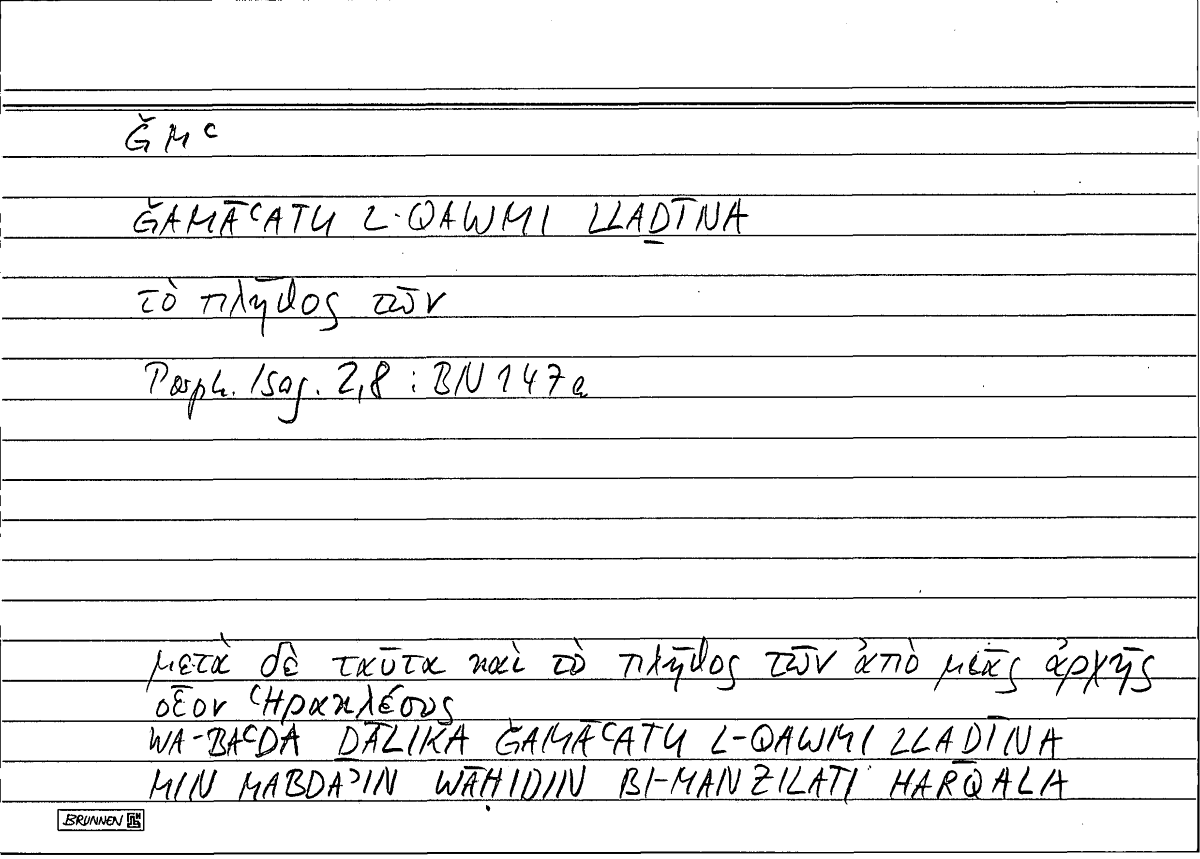 ǦMᶜ
ǦAMĀᶜATU L-QAWMI LLAḎĪNA
τὸ πλῆθος τῶν
Porph. Isag. 2,8 : BN 147a
μετὰ δὲ ταῦτα καὶ τὸ πλῆθος τῶν ἀπὸ μιᾶς ἀρχῆς
οἷον Ἡρακλέους
WA-BAᶜDA ḎĀLIKA ǦAMĀᶜATU L-QAWMI LLAḎĪNA
MIN MABDAʾIN WĀḤIDIN BI-MANZILATI HARQALA
BRUNNEN